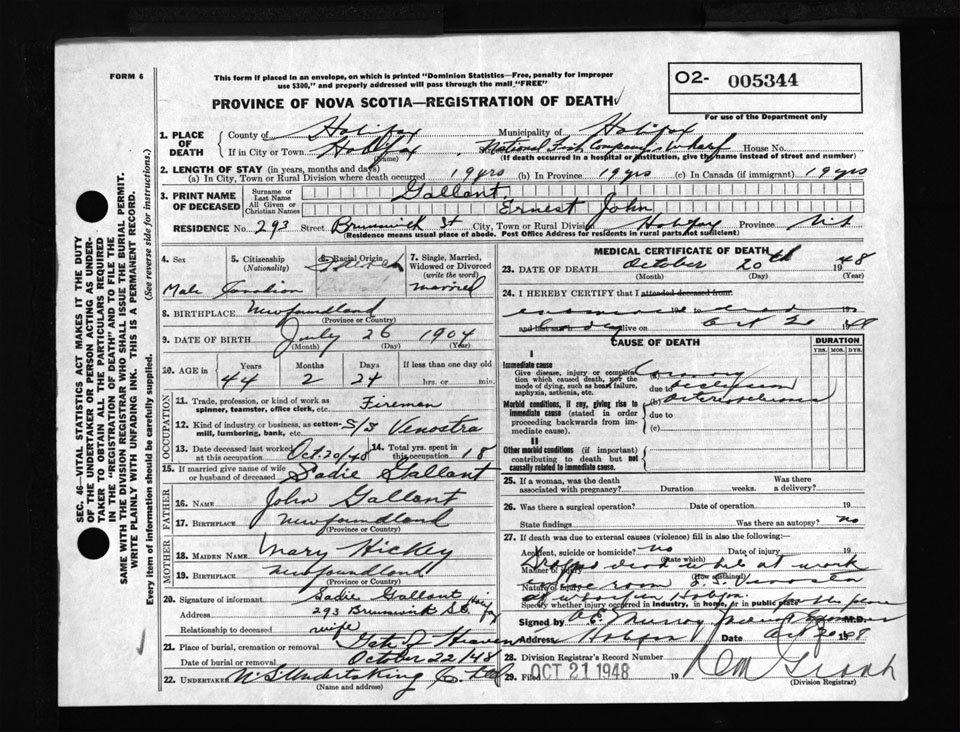 FORM 6
This form if placed in an envelope, on which is printed "Dominion Statistics—Free, penalty for improper
use $300," and properly addressed will pass through the mail "FREE"
O2- 005344
PROVINCE OF NOVA SCOTIA—REGISTRATION OF DEATH
For use of the Department only
1. PLACE OF DEATH
County of Halifax Municipality of Halifax
If in City or Town Halifax (Name) National Fish Company's Wharf House No.
(If death occurred in a hospital or institution, give the name instead of street and number)
2. LENGTH OF STAY (in years, months and days)
(a) In City, Town or Rural Division where death occurred 19 yrs (b) In Province 19 yrs (c) In Canada (if immigrant) 19 yrs
3. PRINT NAME OF DECEASED
Surname or Last Name Gallant,
All Given or Christian Names Ernest John
RESIDENCE No. 293 Street Brunswick St City, Town or Rural Division Halifax Province N.S
(Residence means usual place of abode. Post Office Address for residents in rural parts not sufficient)
4. Sex Male
5. Citizenship (Nationality) Canadian
6. Racial Origin French
7. Single, Married, Widowed or Divorced (write the word) married
8. BIRTHPLACE Newfoundland
(Province or Country)
9. DATE OF BIRTH July 26 1904
(Month) (Day) (Year)
10. AGE in Years 44 Months 2 Days 24 If less than one day old hrs. or min.
OCCUPATION
11. Trade, profession, or kind of work as spinner, teamster, office clerk, etc. Fireman
12. Kind of industry or business, as cotton-mill, lumbering, bank, etc. S/S Venostra
13. Date deceased last worked at this occupation Oct. 20/48
14. Total yrs. spent in this occupation 18
15. If married give name of wife or husband of deceased Sadie Gallant
FATHER
16. NAME John Gallant
17. BIRTHPLACE Newfoundland
(Province or Country)
MOTHER
18. MAIDEN NAME Mary Hickey
19. BIRTHPLACE Newfoundland
(Province or Country)
20. Signature of informant Sadie Gallant
Address 293 Brunswick St Halifax
Relationship to deceased wife
21. Place of burial, cremation or removal Gate of Heaven
Date of burial or removal October 22/48
22. UNDERTAKER N.S. Undertaking Co. Ltd
(Name and address)
MEDICAL CERTIFICATE OF DEATH
23. DATE OF DEATH October 20th 1948
(Month) (Day)
24. I HEREBY CERTIFY that I attended deceased from
examined 19 to 19
and last saw alive on Oct 20 1948
body
CAUSE OF DEATH
DURATION
YRS. MOS. DYS.
I
Immediate cause
Give disease, injury or complication which caused death, not the mode of dying, such as heart failure, asphyxia, asthenia, etc.
Coronary
due to occlusion
Morbid conditions, if any, giving rise to immediate cause (stated in order proceeding backwards from immediate cause).
(b) Arteriosclerosis
due to
(c)
II
Other morbid conditions (if important) contributing to death but not causally related to immediate cause.
25. If a woman, was the death associated with pregnancy? Duration weeks. Was there a delivery?
26. Was there a surgical operation? Date of operation 19
State findings Was there an autopsy? no
27. If death was due to external causes (violence) fill in also the following:
Accident, suicide or homicide? no Date of injury 19
(State which)
Manner of injury Dropped dead while at work
(How sustained)
Nature of injury engine room S.S.
Specify whether injury occurred in industry, in home, or in public place
Signed by Murray Medical Examiner M.D.
Address Halifax Date Oct 20 1948
28. Division Registrar's Record Number
29. Filed OCT 21 1948 19
(Division Registrar)
SEC. 46—VITAL STATISTICS ACT MAKES IT THE DUTY
OF THE UNDERTAKER OR PERSON ACTING AS UNDER-
TAKER TO OBTAIN ALL THE PARTICULARS REQUIRED
IN THE "REGISTRATION OF DEATH" AND TO FILE THE
SAME WITH THE DIVISION REGISTRAR WHO SHALL ISSUE THE BURIAL PERMIT.
WRITE PLAINLY WITH UNFADING INK. THIS IS A PERMANENT RECORD.
Every item of information should be carefully supplied. (See reverse side for instructions.)